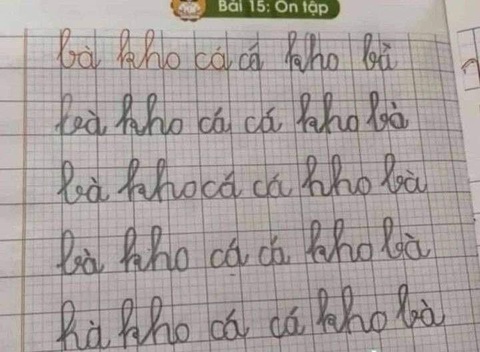 Bài 15: Ôn tập
bà kho cá cá kho bà
bà kho cá cá kho bà
bà kho cá cá kho bà
bà kho cá cá kho bà
bà kho cá cá kho bà